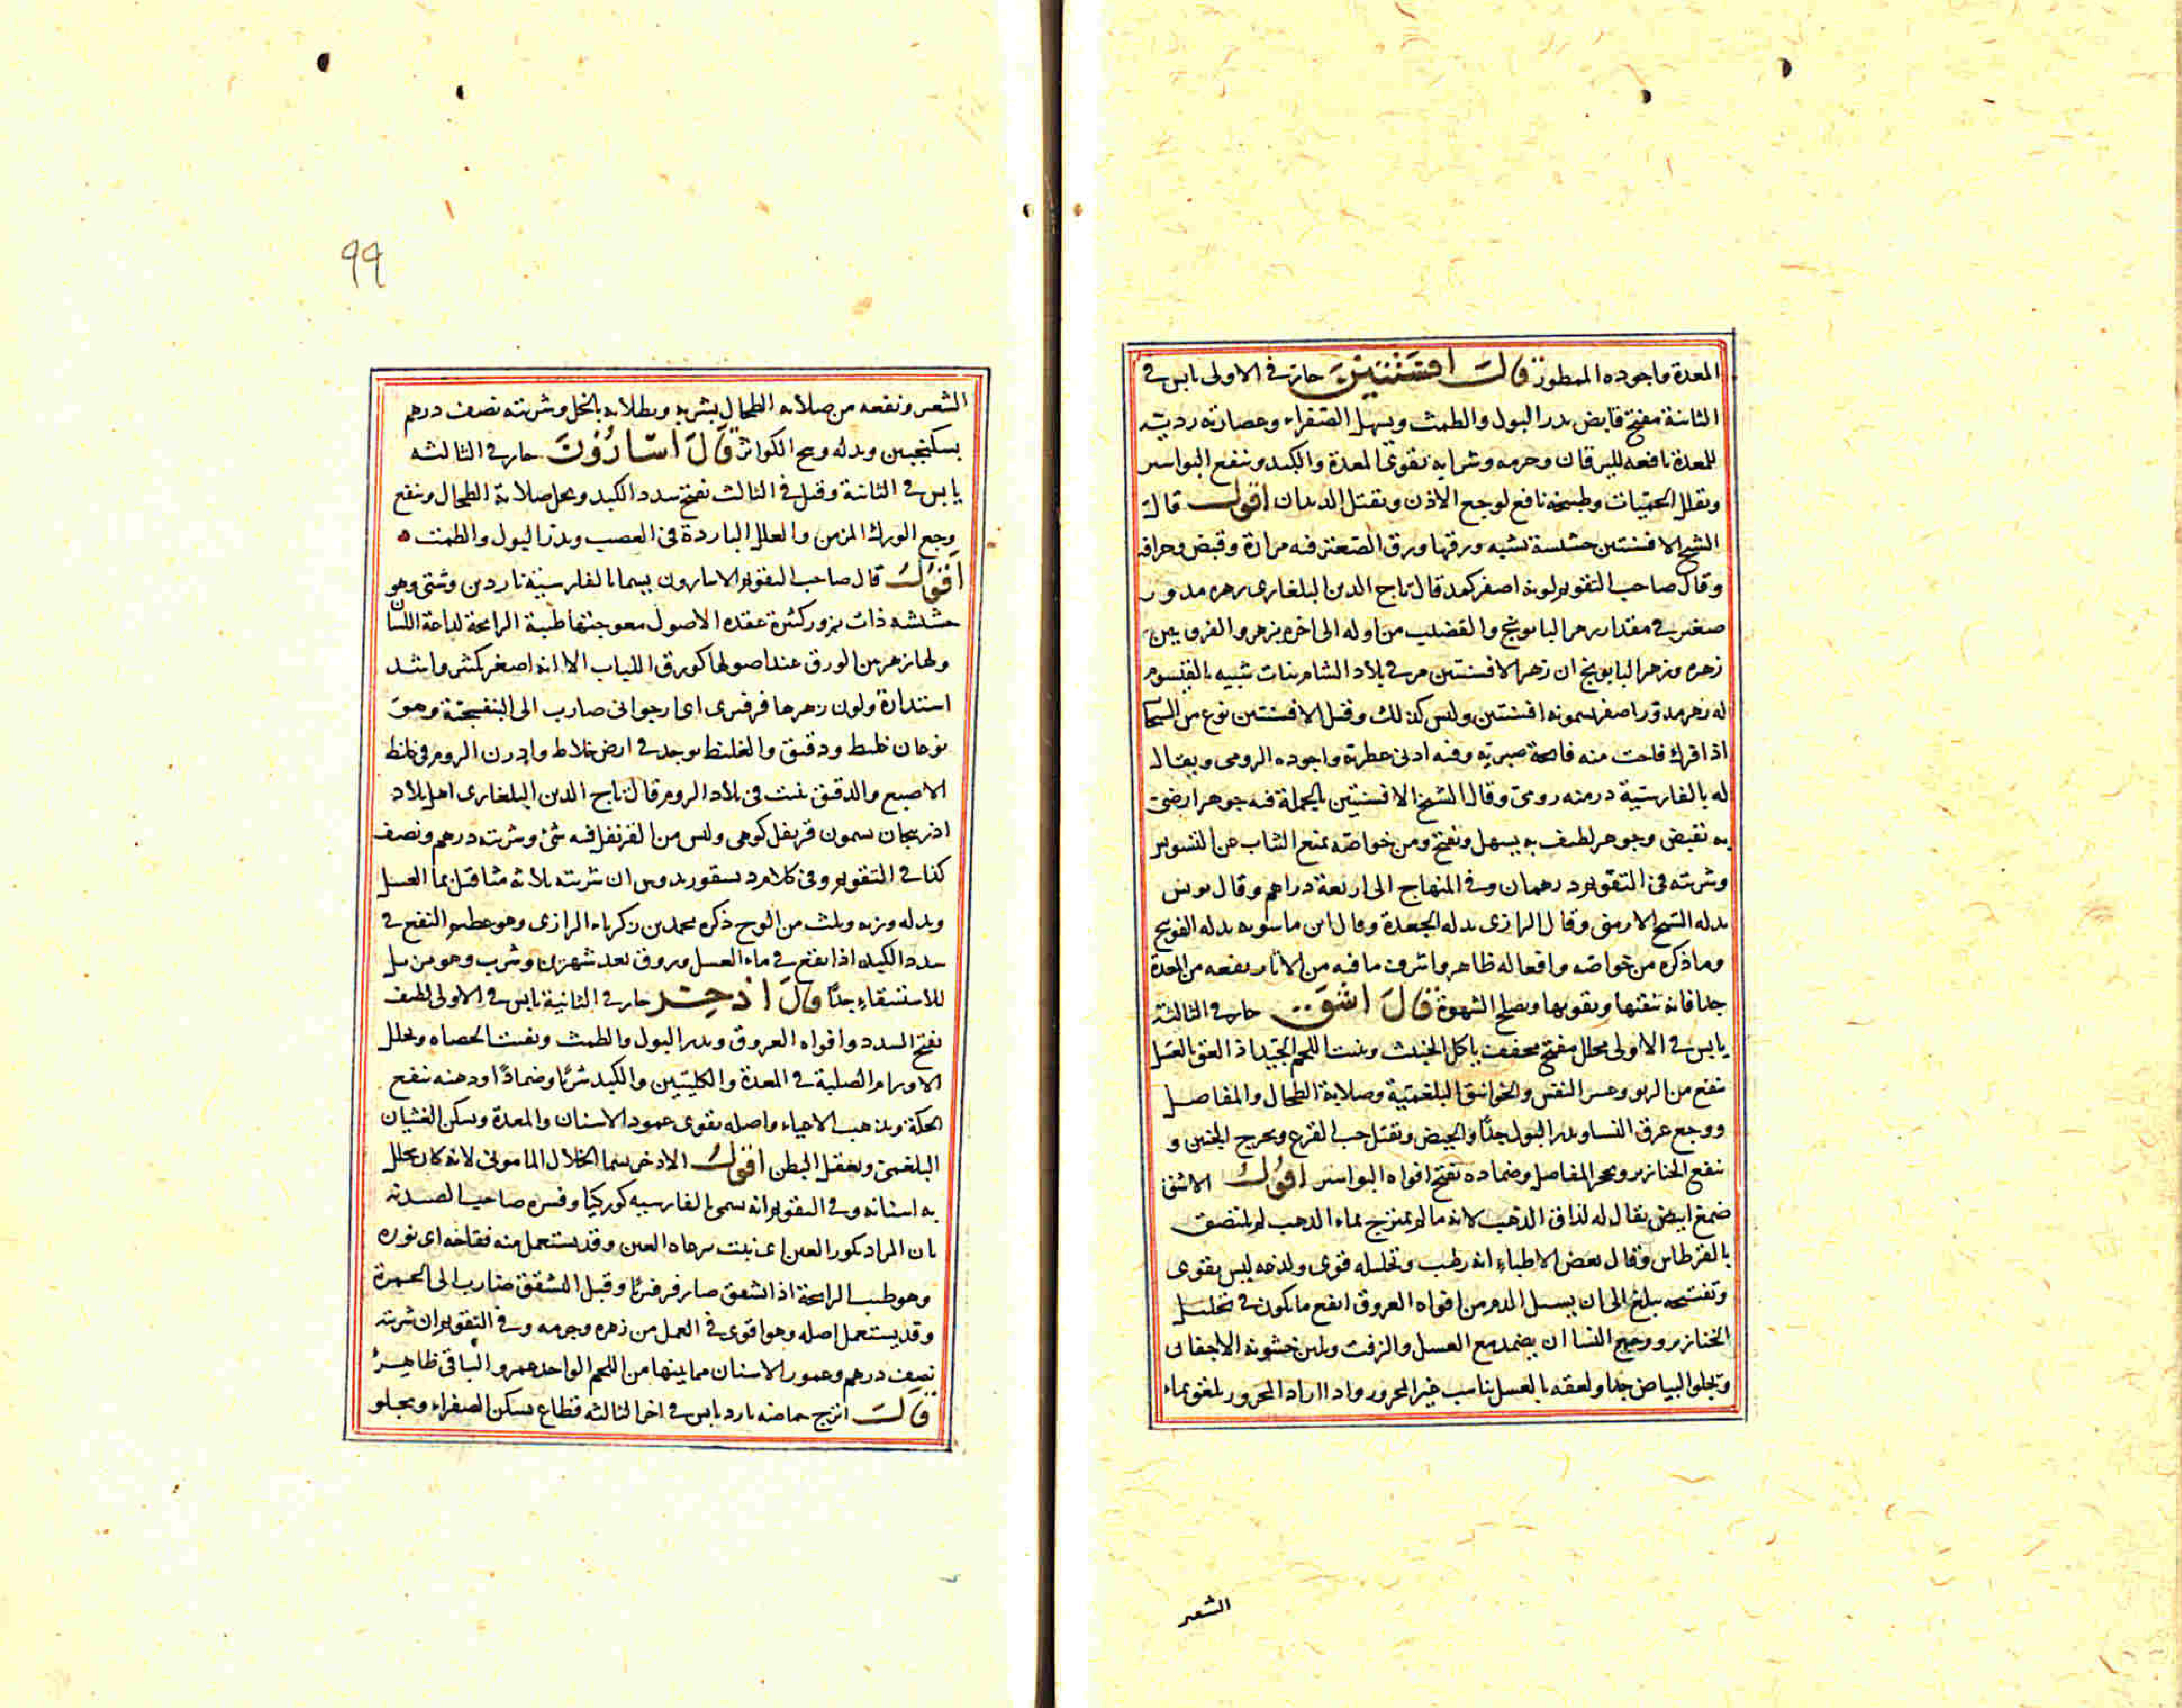 المعدة واجوده الممطور قال افسنتين حار في الاولى يابس في
الثانية مفتح قابض يدر البول والطمث ويسهل الصفراء وعصارته رديئة
للمعدة نافعه لليرقان وجرمه وشرابه يقوى المعدة والكبد وينفع البواسير
ويقلل الحميات وطبيخه نافع لوجع الاذن ويقتل الديدان اقول قال
الشيخ الافسنتين حشيشة تشبه ورقها ورق الصعتر فيه مرارة وقبض وحرافة
وقال صاحب التقويم لونه اصفر كمد قال تاج الدين البلغارى زهره مدور
صغير في مقدار زهر البابونج والقضيب من اوله الى اخره زهر والفرق بين
زهره وزهر البابونج ان زهر الافسنتين مر في بلاد الشام نبات شبيه بالقيسوم
له زهر مدور اصفر يسمونه افسنتين وليس كذلك وقيل الافسنتين نوع من الشيح
اذا فرك فاحت منه فائحة صبرية وفيه ادنى عطرية واجوده الرومى ويقال
له بالفارسية درمنه رومى وقال الشيخ الافسنتين بالجملة فيه جوهر ارضى
به يقبض وجوهر لطيف به يسهل ويفتح ومن خواصه يمنع الثياب عن التسويس
وشربته في التقويم درهمان وفي المنهاج الى اربعة دراهم وقال يونس
بدله الشيح الارمنى وقال الرازى بدله الجعدة وقال ابن ماسويه بدله الفوتنج
وما ذكره من خواصه وافعاله ظاهر واشرف ما فيه من الاثار نفعه من المعدة
جدا فانه ينقيها ويقويها ويصلح الشهوة قال اشق حار في الثالثة
يابس في الاولى محلل مفتح مجفف ياكل الخبيث وينبت اللحم الجيد اذا لعق بالعسل
ينفع من الربو وعسر النفس والخوانيق البلغمية وصلابة الطحال والمفاصل
ووجع عرق النسا ويدر البول جدا والحيض ويقتل حب القرع ويخرج الجنين و
ينفع الخنازير وتحجر المفاصل وضماده يفتح افواه البواسير اقول الاشق
صمغ ابيض يقال له لذاق الذهب لانه ما لم يمتزج بماء الذهب لم يلتصق
بالقرطاس وقال بعض الاطباء انه رطب وتحليله قوى ولذعه ليس بقوى
وتفتيحه يبلغ الى ان يسيل الدم من افواه العروق انفع ما يكون في تحليل
الخنازير ووجع النسا ان يضمد مع العسل والزفت ويلين خشونة الاجفان
ويجلو البياض جدا ولعقه بالعسل يناسب غير المحرور واذا اراد المحرور يلعق بماء
الشعير
٩٩
الشعير ونفعه من صلابة الطحال بشربه وبطلائه بالخل وشربته نصف درهم
بسكنجبين وبدله وسخ الكوائر قال اسارون حار في الثالثه
يابس في الثانية وقيل في الثالث يفتح سدد الكبد ويحل صلابة الطحال وينفع
وجع الورك المزمن والعلل الباردة في العصب ويدر البول والطمث
اقول قال صاحب التقويم الاسارون يسما بالفارسية ناردين دشتى وهو
حشيشه ذات بزور كثيرة عقده الاصول معوجتها طيبة الرائحة لذاعة اللسان
ولها زهر من الورق عند اصولها كورق اللبلاب الا انه اصغر بكثير واشد
استدارة ولون زهرها فرفيرى اى ارجوانى ضارب الى البنفسجية وهو
نوعان غليظ ودقيق والغليظ يوجد في ارض خلاط وارزن الروم في غلظ
الاصبع والدقيق ينبت في بلاد الروم قال تاج الدين البلغارى اهل بلاد
اذربيجان يسمون قرنفل كوهى وليس من القرنفل فيه شئ وشربته درهم ونصف
كذا في التقويم وفي كلام ديسقوريدوس ان شربته ثلاثه مثاقيل بما العسل
وبدله وزنه وثلث من الوج ذكره محمد بن زكرياء الرازى وهو عظيم النفع في
سدد الكبد اذا نقع في ماء العسل وروق بعد شهرين وشرب وهو مزيل
للاستسقاء جدا قال اذخر حار في الثانية يابس في الاولى لطيف
يفتح السدد وافواه العروق ويدر البول والطمث ويفتت الحصاه ويحلل
الاورام الصلبة في المعدة والكليتين والكبد شربا وضمادا ودهنه ينفع
الحكة ويذهب الاعياء واصله يقوى عمود الاسنان والمعدة ويسكن الغثيان
البلغمى ويعقل البطن اقول الاذخر يسما الخلال المامونى لانه كان يخلل
به اسنانه وفي التقويم انه يسمى بالفارسيه كوركيا وفسره صاحب الصيدنه
بان المراد بكور العين اى نبت برعاه العين وقد يستعمل منه فقاحه اى نوره
وهو طيب الرائحة اذا تشقق صار فرفيريا وقبل التشقق ضارب الى الحمرة
وقد يستعمل اصله وهو اقوى في العمل من زهره وجرمه وفي التقويم ان شربته
نصف درهم وعمور الاسنان مما بينها من اللحم الواحد عمر والباقى ظاهر
قال اترج حماضه بارد يابس في اخر الثالثه قطاع يسكن الصفراء ويجلو